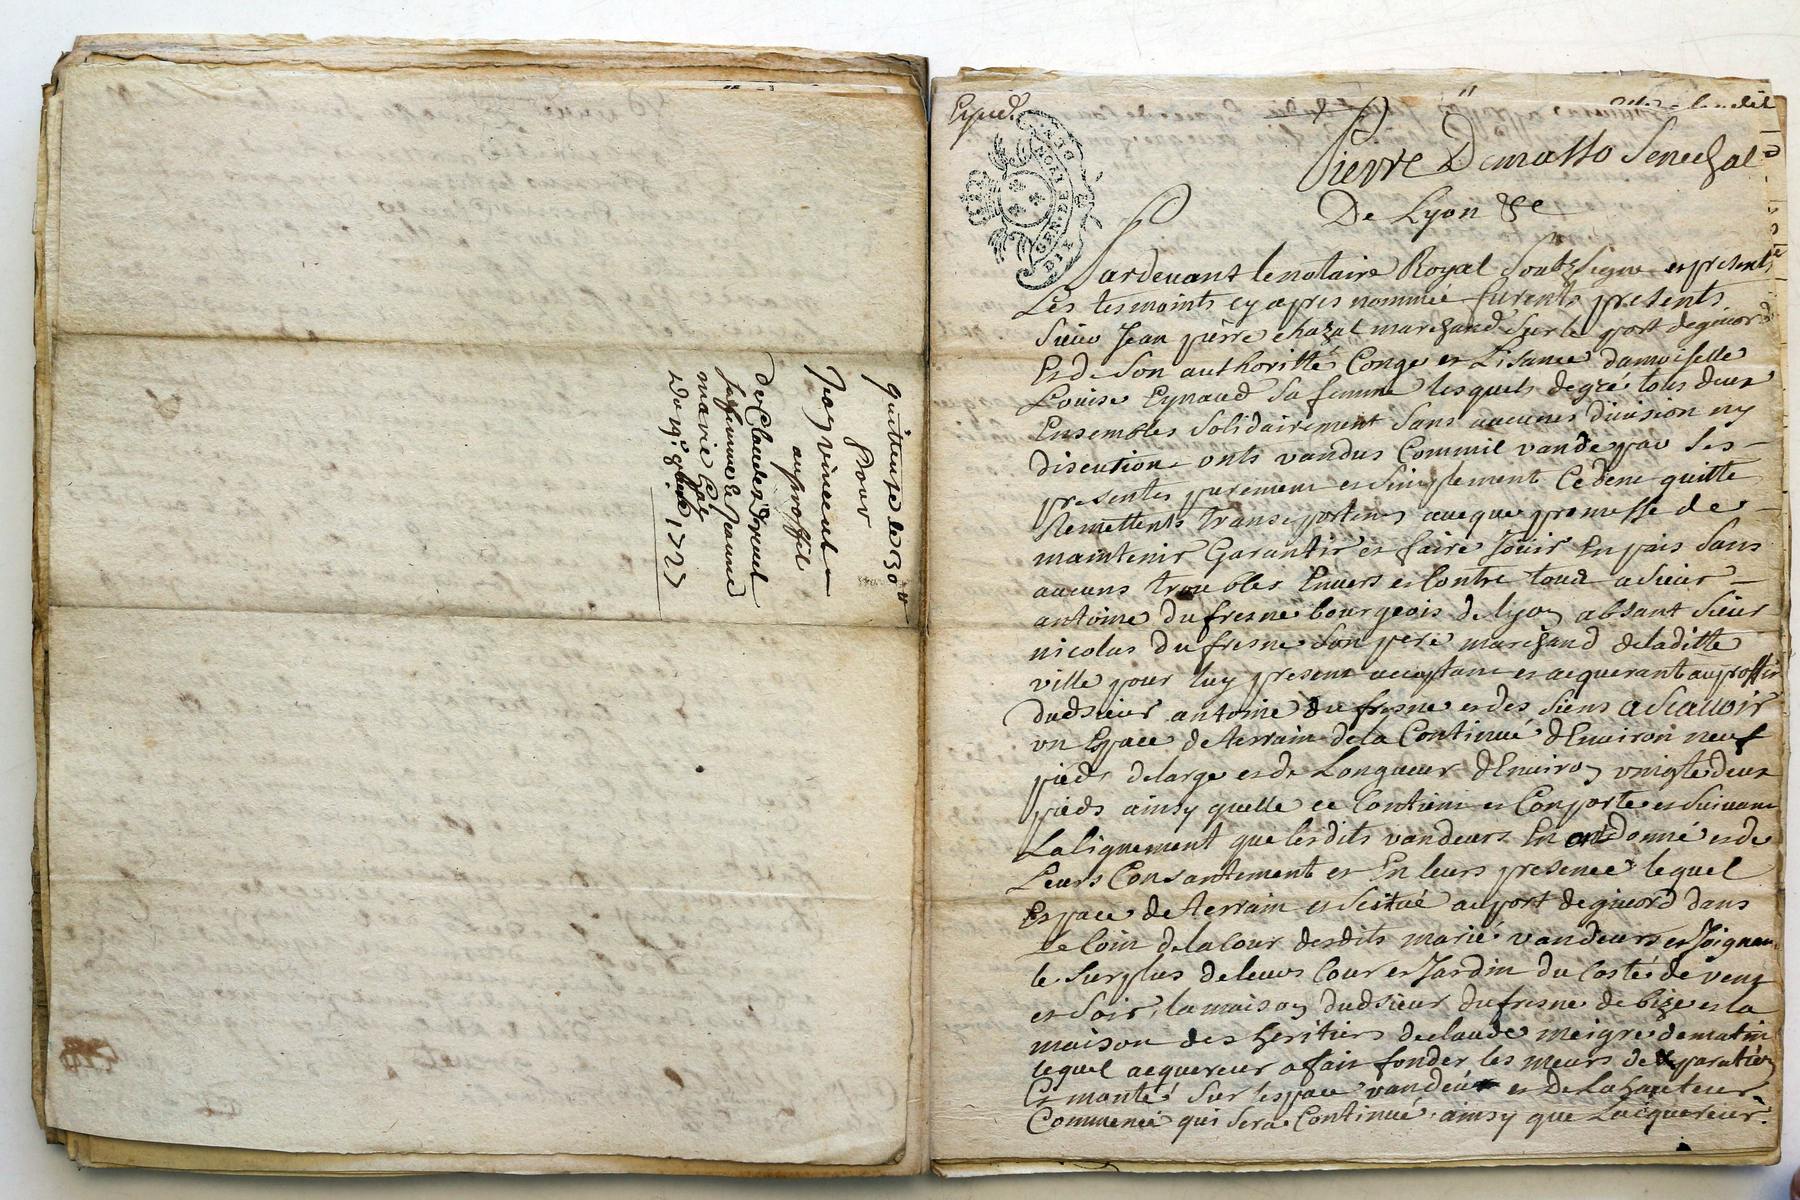 quittense de 30 ##
pour
Joay vincent
au proffit
de Claude Drevet
sa femme et Jeanne
marie
Du 19e 9bre 1727
Exped.
GEN. DE LYON
Pierre Demasso Senechal
De Lyon &c
Pardevant le notaire Royal Soubsigne et presents
Les tesmoints cy apres nommée furents presents
Sieur Jean pierre chazal marchand Sur le port de givord
Et de Son authoritté Conge et Lisance damoiselle
Louise Eynaud Sa femme lesquels de gré tous deux
Ensembles Solidairement Sans aucunes division ny
discution onts vandus Comme il vande par Ses
presentes purement et Simplement Cedent quitte
Remettents transportent avecque promesse de
maintenir Garantir et faire Jouir En pais Sans
aucuns troubles Envers et Contre tous a Sieur
antoine dufresne bourgeois de lyon absant Sieur
nicolas Dufresne Son pere marchand de laditte
ville pour luy present acceptant et acquerant au proffit
dudsieur antoine dufresne et des Siens a Scavoir
un Espace de terrain de la Continue d'Environ neuf
pieds de large et de Longueur d'Environ vingte deux
pieds ainsy quelle ce Contient et Conporte et Suivant
Lalignement que lesdits vandeurs En onts donné et de
Leurs Consantement et En leurs presence lequel
Espace de terrain et Scitué au port de givord dans
Le Coin de la Cour desdits marié vandeurs et Joignant
le Surplus de leurs Cour et Jardin du Costé de vent
et Soir, la maison dudsieur dufresne de bize et la
maison des heritiers de claude meigre de matin
lequel acquereur a fait fonder les meurs de Separation
Et monté Sur lespace vandeu et De la hauteur
Commencé qui Sera Continué ainsy que Lacquereur